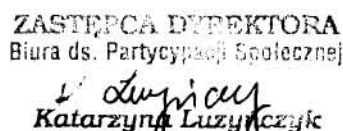 ZASTĘPCA DYREKTORA
Biura ds. Partycypacji Społecznej
Katarzyna Luzyńczyk